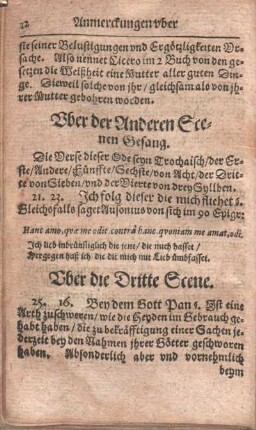 32 Anmerckungen vber
ste seiner Belustigungen vnd Ergötzligkeiten Vr-
sache. Also nennet Cicero im 2 Buch von den ge-
setzen die Weißheit eine Mutter aller guten Din-
ge. Dieweil solche von jhr / gleichsam als von jh-
rer Mutter gebohren worden.
Vber der Anderen Sce-
nen Gesang.
Die Verse dieser Ode seyn Trochaisch / der Er-
ste / Andere / Fünffte / Sechste / von Acht / der Drit-
te von Sieben / vnd der Vierte von drey Syllben.
21. 23. Ich folg dieser die mich fliehet ꝛ.
Gleichesfalls saget Ausonius von sich im 90 Epigr:
Hanc amo, quæ me odit contrà hanc, quoniam me amat, odi.
Ich lieb inbrünstiglich die jene / die mich hasset /
Hergegen haß ich die die mich mit Lieb vmbfasset.
Vber die Dritte Scene.
25. 16. Bey dem Gott Pan ꝛ. Ist eine
Arth zuschweren / wie die Heyden im Gebrauch ge-
habt haben / die zu bekräfftigung einer Sachen je-
derzeit bey den Nahmen jhrer Götter geschworen
haben. Absonderlich aber vnd vornehmlich
beym